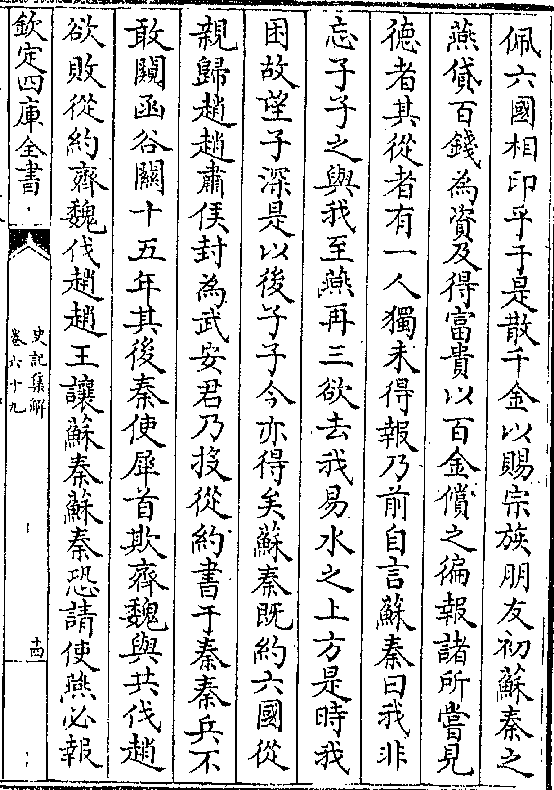 佩六國相印乎于是散千金以賜宗族朋友初蘇秦之
燕貸百錢為資及得富貴以百金償之徧報諸所嘗見
徳者其從者有一人獨未得報乃前自言蘇秦曰我非
忘子子之與我至燕再三欲去我易水之上方是時我
困故望子深是以後子子今亦得矣蘇秦既約六國從
親歸趙趙肅侯封為武安君乃投從約書于秦秦兵不
敢闚函谷闗十五年其後秦使犀首欺齊魏與共伐趙
欲敗從約齊魏伐趙趙王讓蘇秦蘇秦恐請使燕必報
欽定四庫全書
史記集解
卷六十九
十四